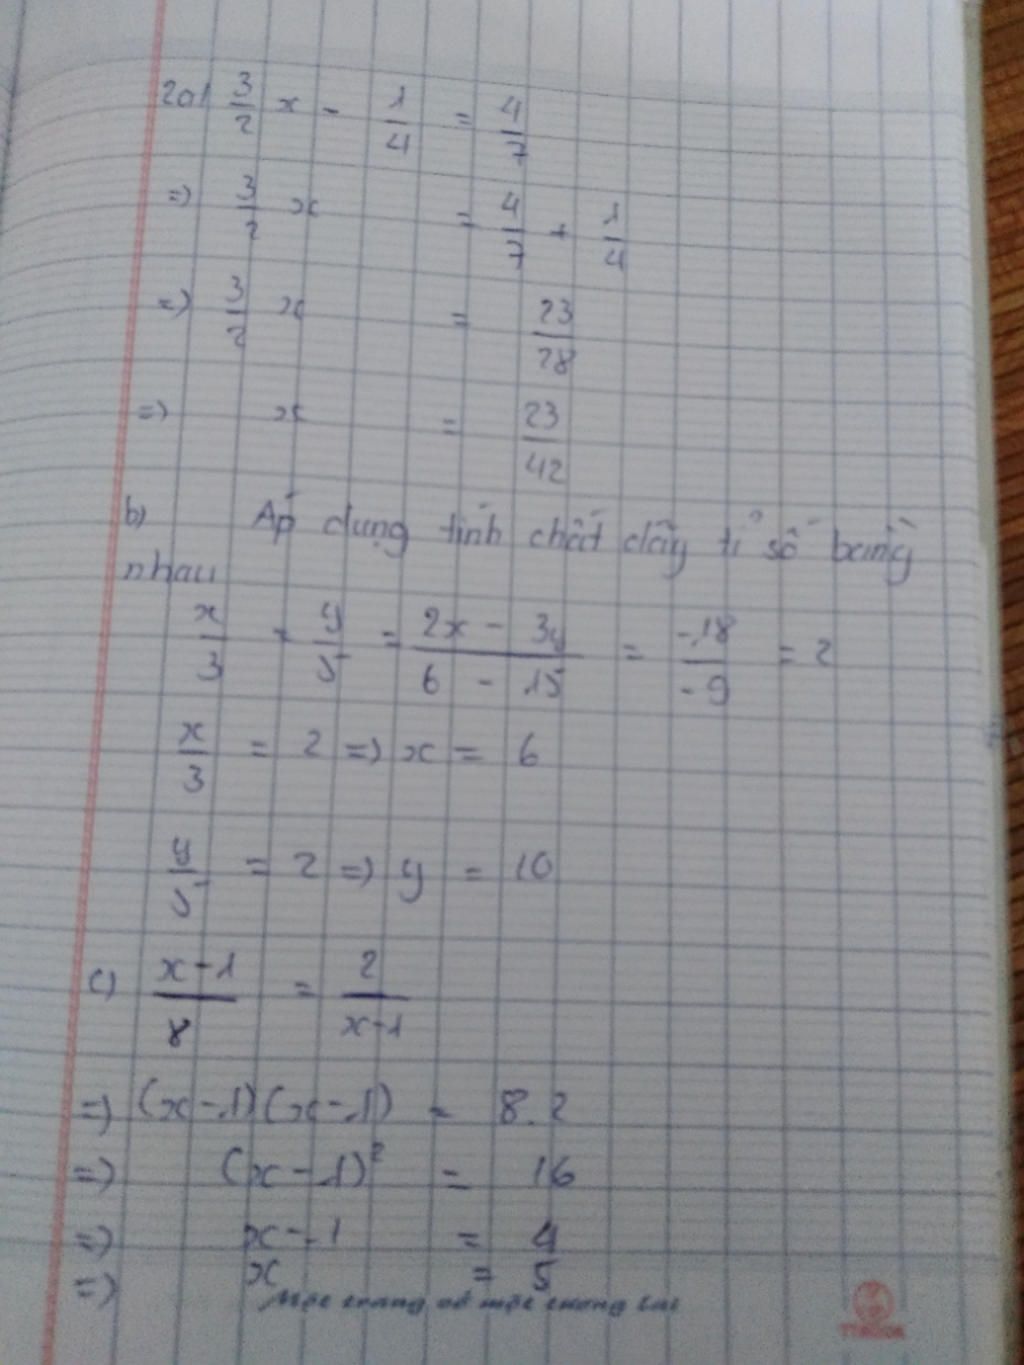 2a) 3/2 x - 1/4 = 4/7
=) 3/2 x = 4/7 + 1/4
=) 3/2 x = 23/28
=) x = 23/42
b) Áp dụng tính chất dãy tỉ số bằng
nhau
x/3 = y/5 = (2x - 3y)/(6 - 15) = -18/-9 = 2
x/3 = 2 =) x = 6
y/5 = 2 =) y = 10
c) (x-1)/8 = 2/(x-1)
=) (x-1)(x-1) = 8.2
=) (x-1)² = 16
=) x-1 = 4
=) x = 5